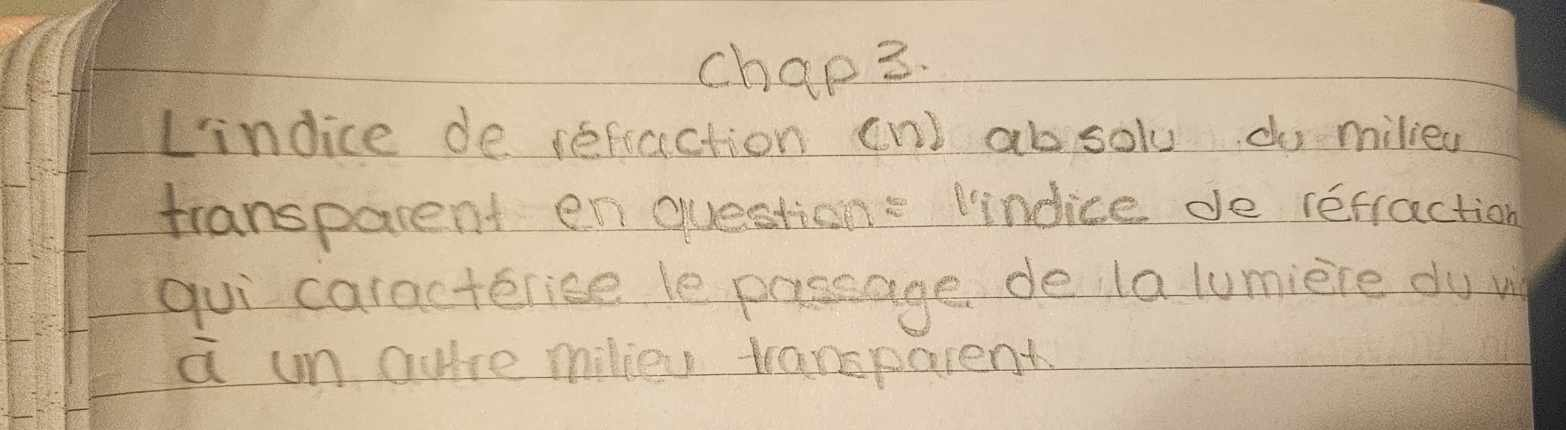 Chap 3.
L'indice de réfraction (n) absolu du milieu
transparent en question = l'indice de réfraction
qui caractérise le passage de la lumière du
à un autre milieu transparent.